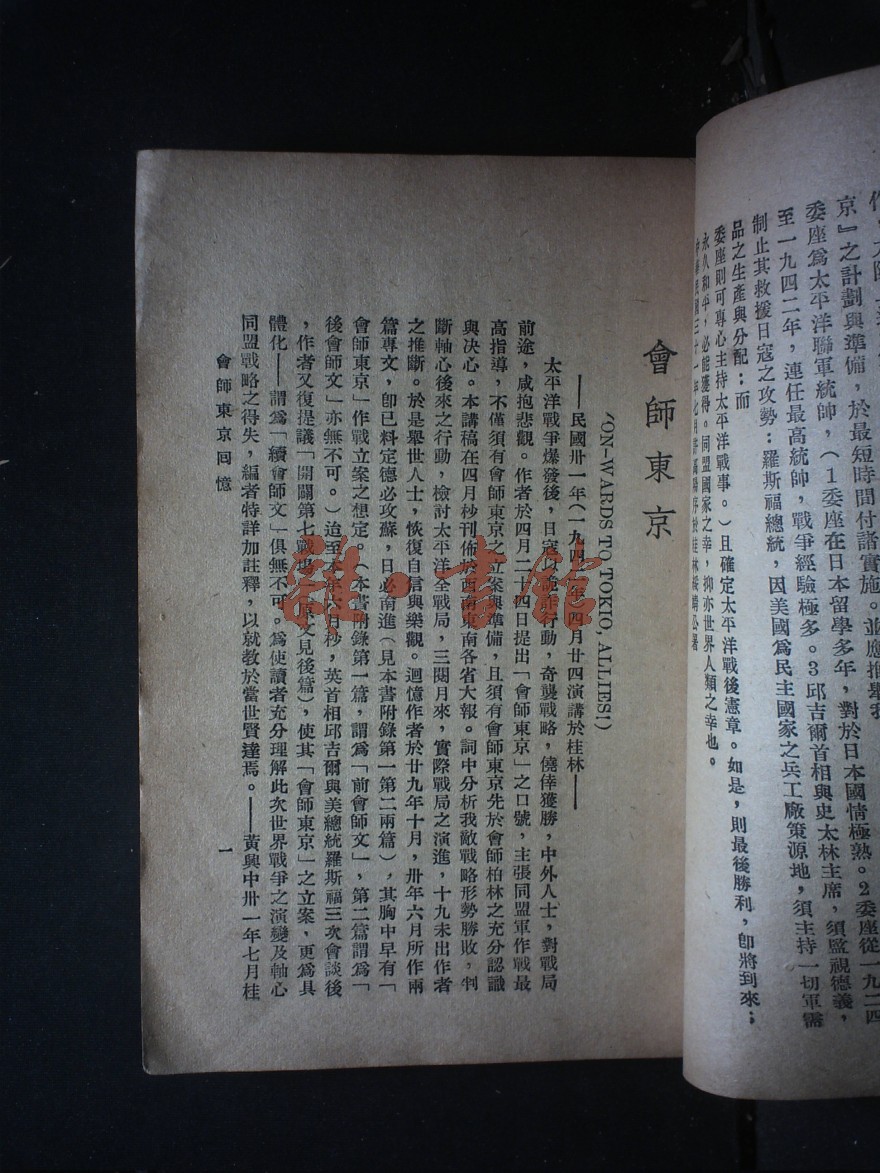 京』之計劃與準備，於最短時間付諸實施。並應推舉我
委座爲太平洋聯軍統帥，（1委座在日本留學多年，對於日本國情極熟。2委座從一九二四
至一九四二年，連任最高統帥，戰爭經驗極多。3邱吉爾首相與史太林主席，須監視德義，
制止其救援日寇之攻勢；羅斯福總統，因美國爲民主國家之兵工廠策源地，須主持一切軍需
品之生產與分配；而
委座則可專心主持太平洋戰事。）且確定太平洋戰後憲章。如是，則最後勝利，卽將到來；
永久和平，必能獲得。同盟國家之幸，抑亦世界人類之幸也。
會師東京
(ON-WARDS TO TOKIO, ALLIES!)
——民國卅一年（一九四二年四月廿四演講於桂林——
太平洋戰爭爆發後，日寇以詭詐行動，奇襲戰略，僥倖獲勝，中外人士，對戰局
前途，咸抱悲觀。作者於四月二十四日提出「會師東京」之口號，主張同盟軍作戰最
高指導，不僅須有會師東京之立案與準備，且須有會師東京先於會師柏林之充分認識
與决心。本講稿在四月杪刊佈於西南東南各省大報。詞中分析我敵戰略形勢勝敗，判
斷軸心後來之行動，檢討太平洋全戰局，三閱月來，實際戰局之演進，十九未出作者
之推斷。於是舉世人士，恢復自信與樂觀。迴憶作者於廿九年十月，卅年六月所作兩
篇專文，卽已料定德必攻蘇，日必南進（見本書附錄第一第二兩篇），其胸中早有「
會師東京」作戰立案之想定。（本書附錄第一篇，謂爲「前會師文」，第二篇謂爲「
後會師文」亦無不可。）迨至本年六月杪，英首相邱吉爾與美總統羅斯福三次會談後
，作者又復提議「開闢第七戰場」（原文見後篇），使其「會師東京」之立案，更爲具
體化——謂爲「續會師文」俱無不可。爲使讀者充分理解此次世界戰爭之演變及軸心
同盟戰略之得失，編者特詳加註釋，以就教於當世賢達焉。——黃興中卅一年七月桂
會師東京回憶
一